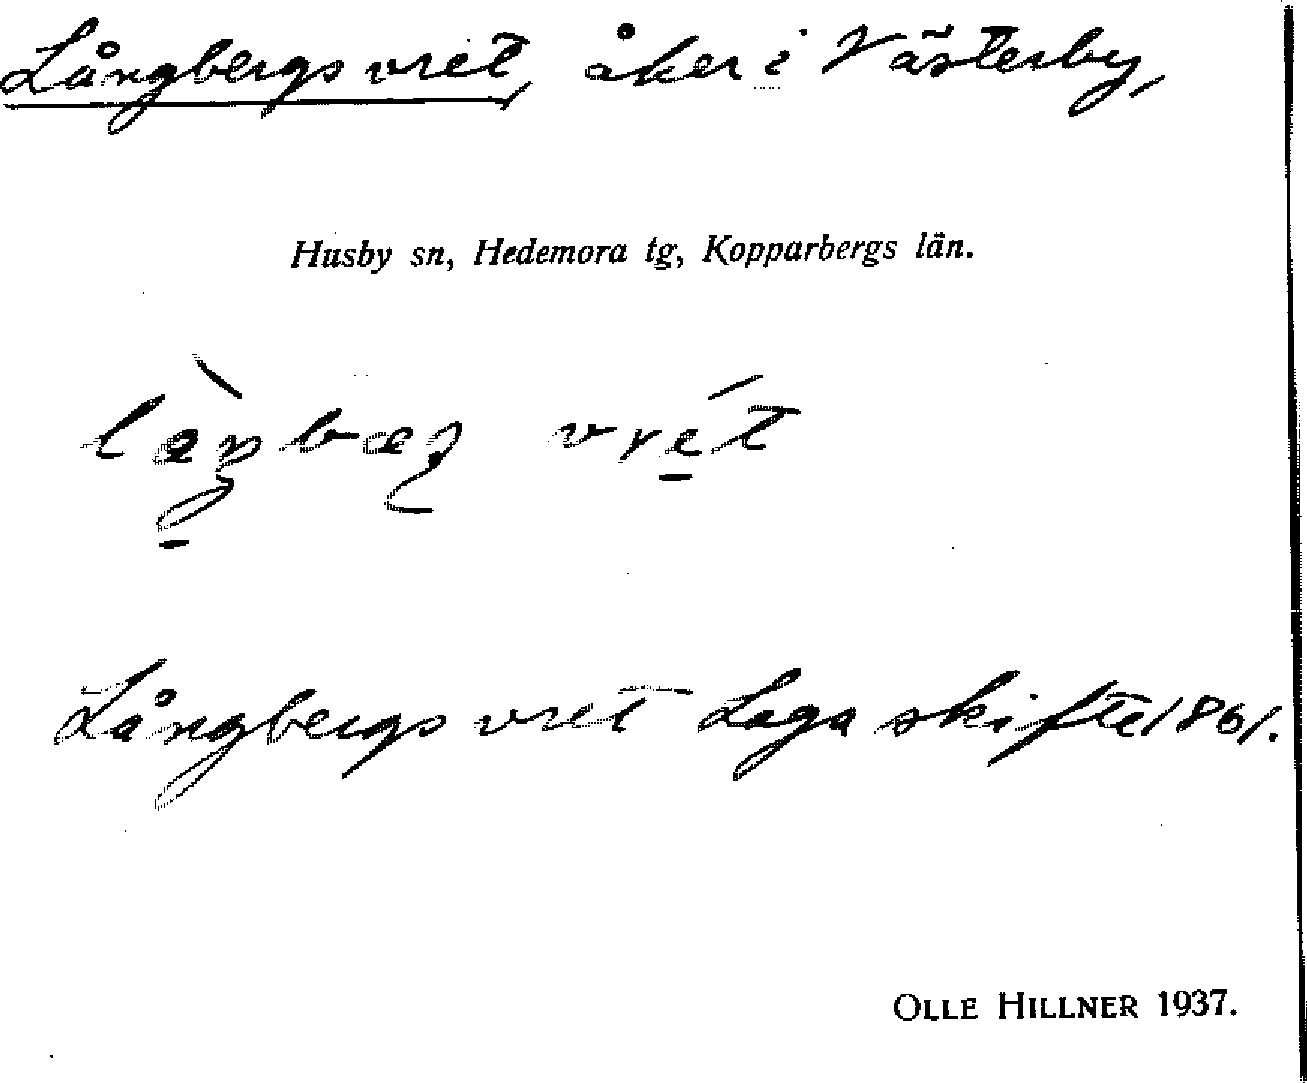 Långbergsvret, åker i Västerby,
Husby sn, Hedemora tg, Kopparbergs län.
Långbergs vret Laga skifte 1861.
OLLE HILLNER 1937.